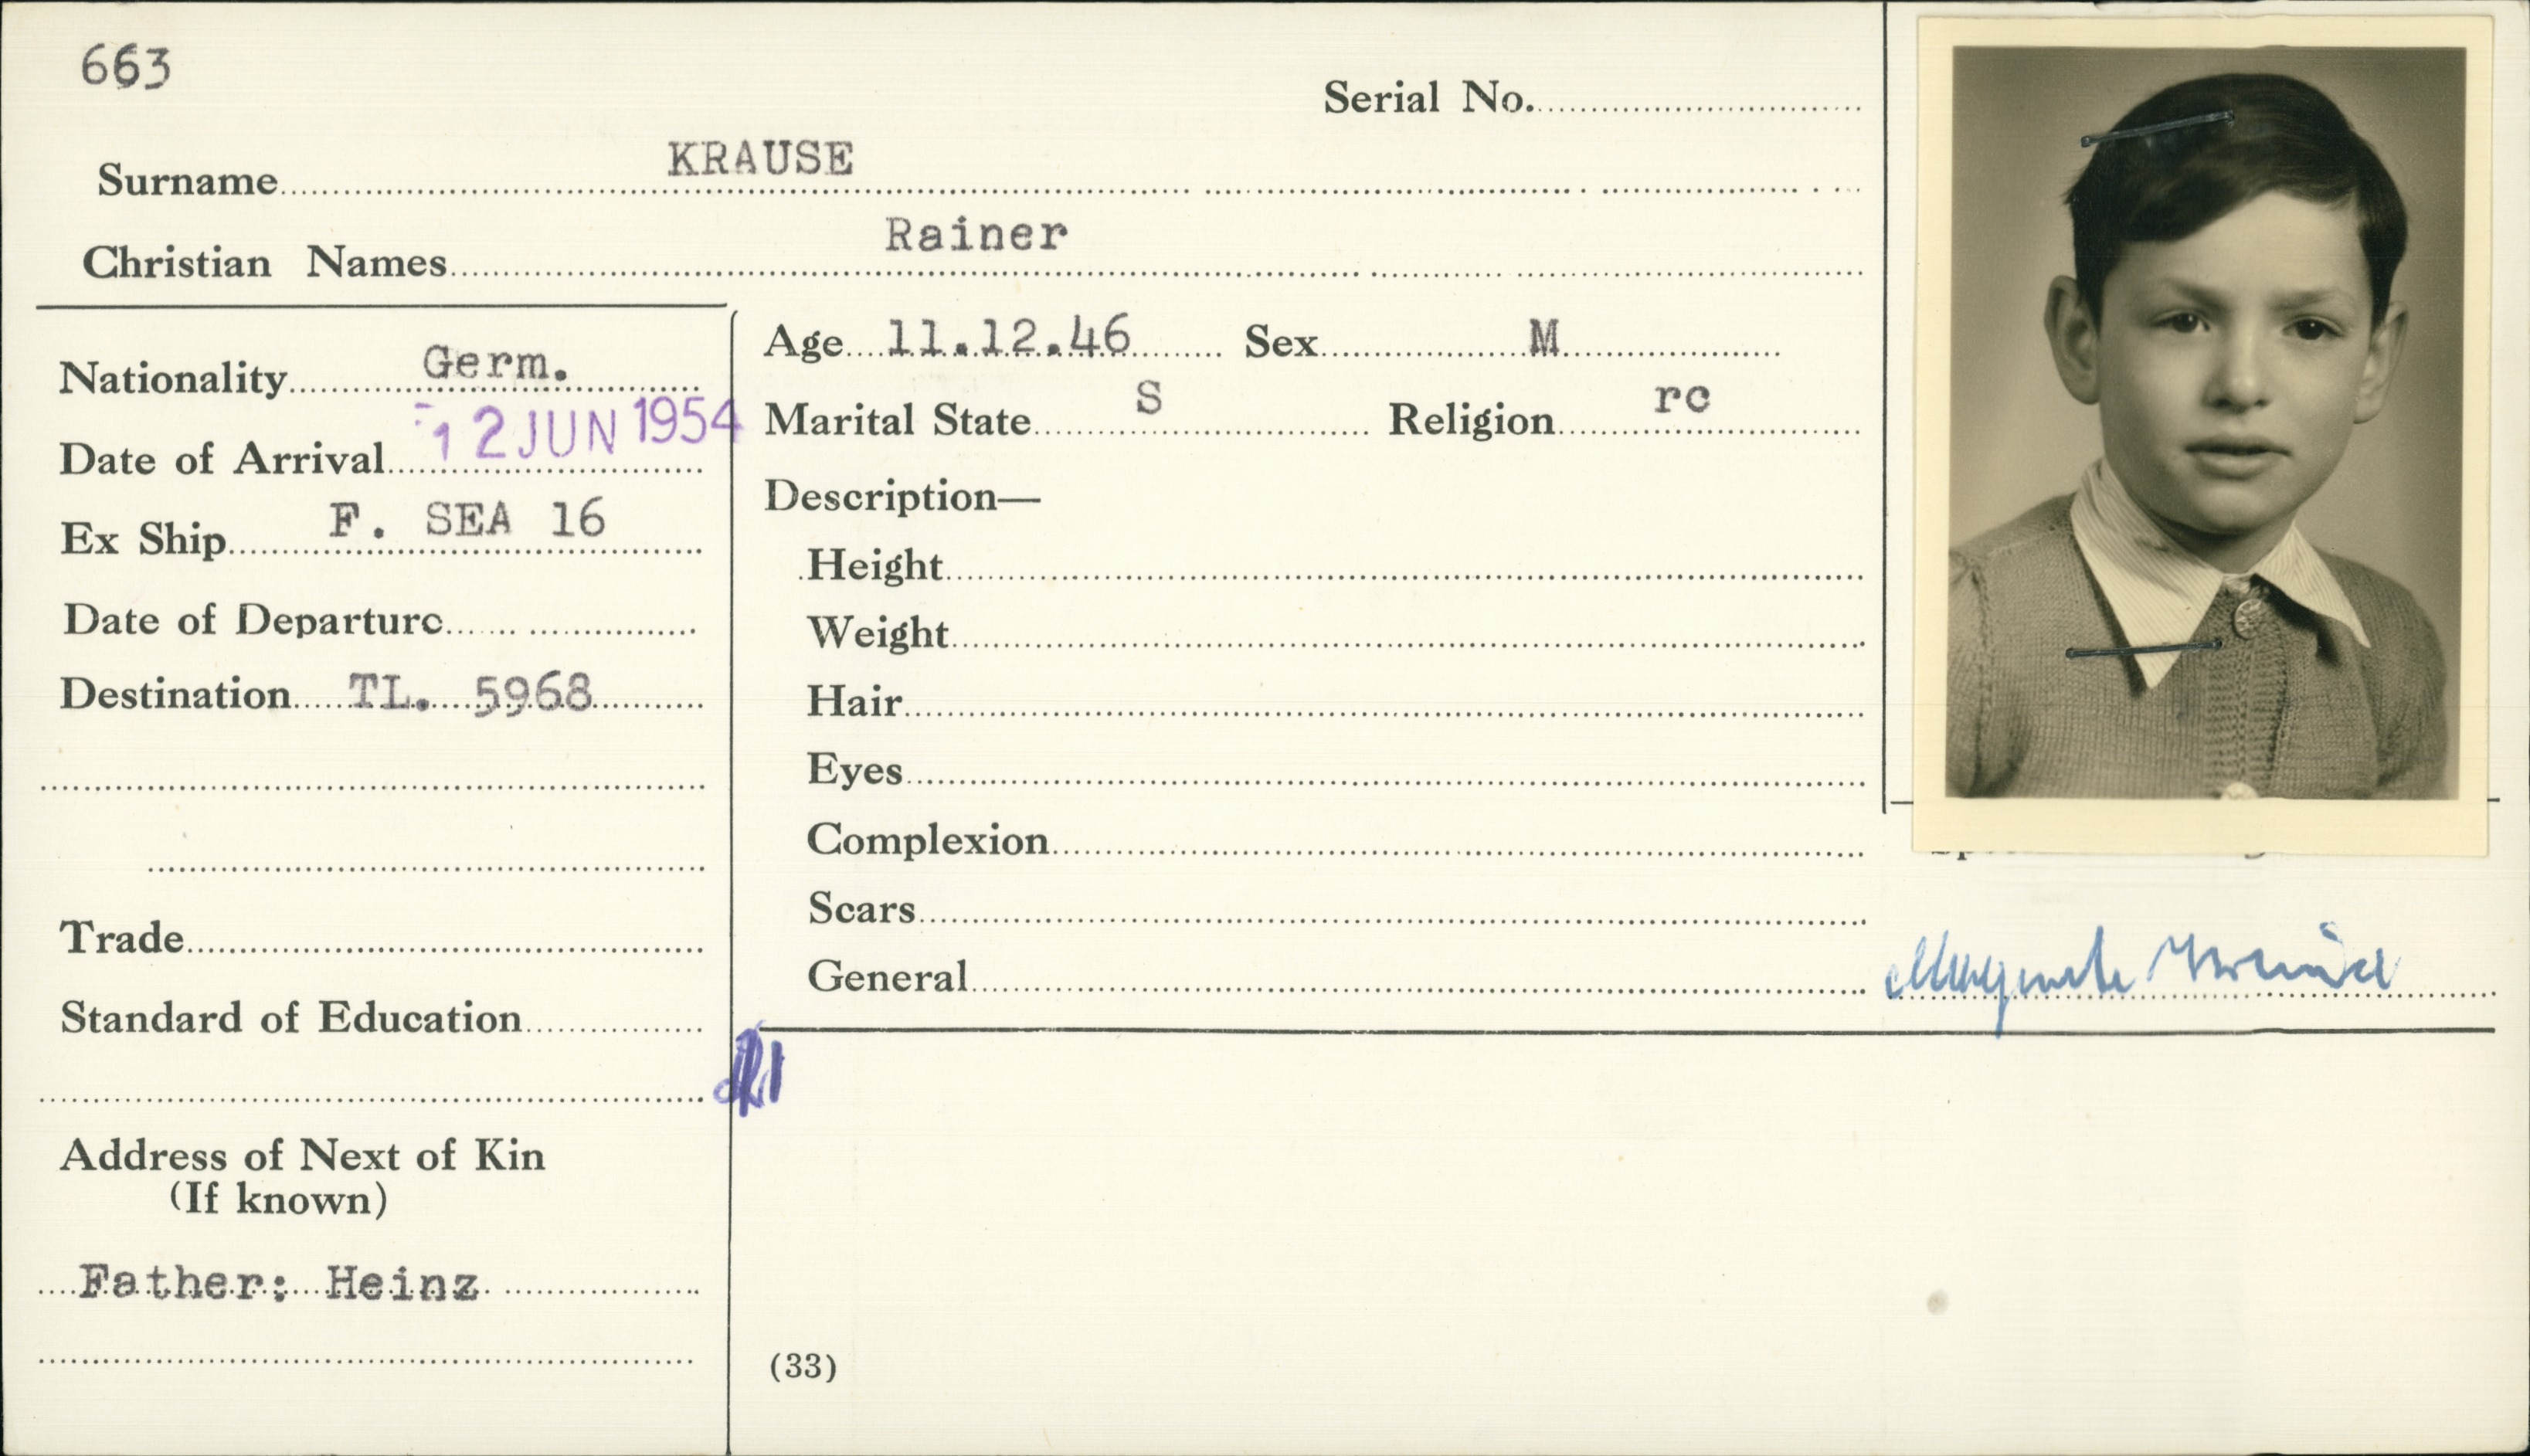 663
Serial No.
Surname KRAUSE
Christian Names Rainer
Nationality Germ.
Date of Arrival 12 JUN 1954
Ex Ship F. SEA 16
Date of Departure
Destination TL. 5968
Trade
Standard of Education
Address of Next of Kin
(If known)
Father: Heinz
Age 11.12.46 Sex M
Marital State S Religion rc
Description—
Height
Weight
Hair
Eyes
Complexion
Scars
General
(33)